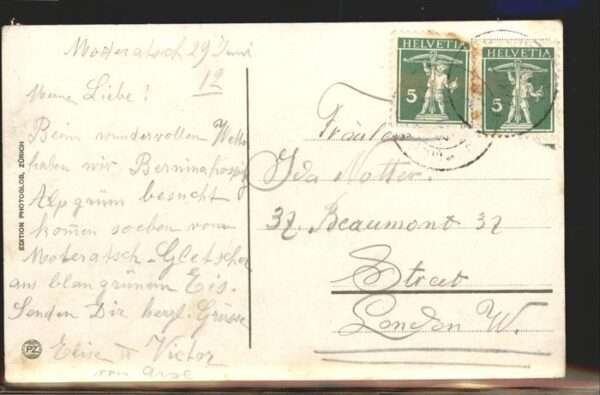 Moteratsch 29 Juni
12
Meine Liebe!
Beim wundervollen
haben wir Berninahospiz
Alpgrüm besucht
kommen soeben vom
Moteratsch-Gletscher
aus blaugrünem Eis.
Senden Dir herzl. Grüsse
Elise u Victor
von
HELVETIA
5
HELVETIA
5
Fräulein
Ida Notter.
32. Beaumont 32
Street
London W.
EDITION PHOTOGLOB, ZÜRICH
PZ